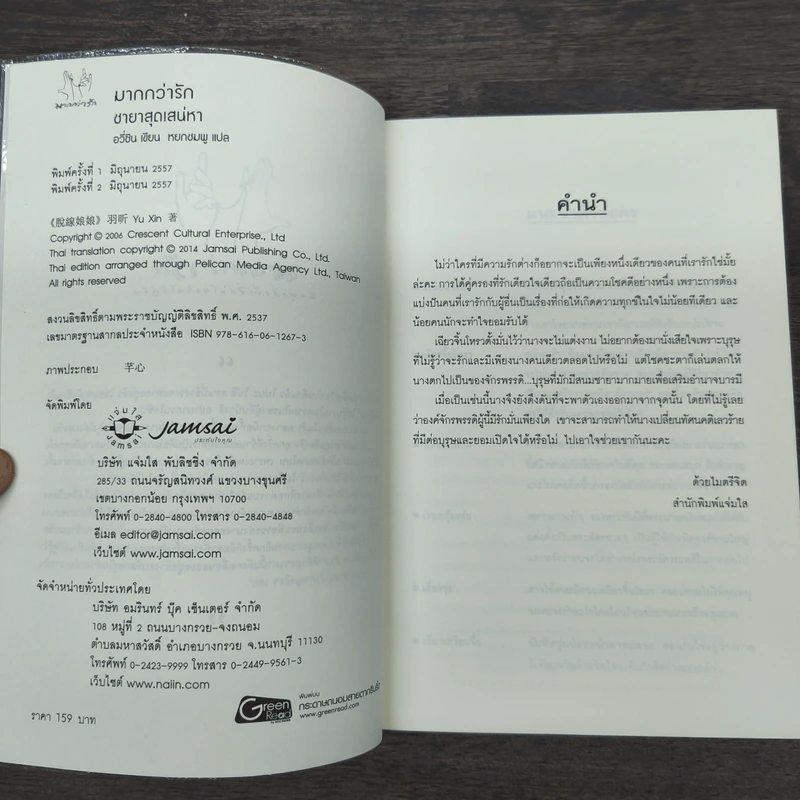 มากกว่ารัก
มากกว่ารัก
ชายาสุดเสน่หา
อวี่ซิน เขียน หยกชมพู แปล
พิมพ์ครั้งที่ 1 มิถุนายน 2557
พิมพ์ครั้งที่ 2 มิถุนายน 2557
《脫線娘娘》羽昕 Yu Xin 著
Copyright © 2006 Crescent Cultural Enterprise., Ltd
Thai translation copyright © 2014 Jamsai Publishing Co., Ltd.
Thai edition arranged through Pelican Media Agency Ltd., Taiwan
All rights reserved
สงวนลิขสิทธิ์ตามพระราชบัญญัติลิขสิทธิ์ พ.ศ. 2537
เลขมาตรฐานสากลประจำหนังสือ ISBN 978-616-06-1267-3
ภาพประกอบ 芊心
จัดพิมพ์โดย
แจ่มใส
Jamsai
Jamsai
ประทับใจคุณ
บริษัท แจ่มใส พับลิชชิ่ง จำกัด
285/33 ถนนจรัญสนิทวงศ์ แขวงบางขุนศรี
เขตบางกอกน้อย กรุงเทพฯ 10700
โทรศัพท์ 0-2840-4800 โทรสาร 0-2840-4848
อีเมล editor@jamsai.com
เว็บไซต์ www.jamsai.com
จัดจำหน่ายทั่วประเทศโดย
บริษัท อมรินทร์ บุ๊ค เซ็นเตอร์ จำกัด
108 หมู่ที่ 2 ถนนบางกรวย-จงถนอม
ตำบลมหาสวัสดิ์ อำเภอบางกรวย จ.นนทบุรี 11130
โทรศัพท์ 0-2423-9999 โทรสาร 0-2449-9561-3
เว็บไซต์ www.naiin.com
ราคา 159 บาท
Green
Read
พิมพ์บน
กระดาษถนอมสายตากรีนรี้ด
www.greenread.com
คำนำ
ไม่ว่าใครที่มีความรักต่างก็อยากจะเป็นเพียงหนึ่งเดียวของคนที่เรารักใช่มั้ย
ล่ะคะ การได้คู่ครองที่รักเดียวใจเดียวถือเป็นความโชคดีอย่างหนึ่ง เพราะการต้อง
แบ่งปันคนที่เรารักกับผู้อื่นเป็นเรื่องที่ก่อให้เกิดความทุกข์ในใจไม่น้อยทีเดียว และ
น้อยคนนักจะทำใจยอมรับได้
เฉียวจิ้นโหรวตั้งมั่นไว้ว่านางจะไม่แต่งงาน ไม่อยากต้องมานั่งเสียใจเพราะบุรุษ
ที่ไม่รู้ว่าจะรักและมีเพียงนางคนเดียวตลอดไปหรือไม่ แต่โชคชะตาก็เล่นตลกให้
นางตกไปเป็นของจักรพรรดิ...บุรุษที่มักมีสนมชายามากมายเพื่อเสริมอำนาจบารมี
เมื่อเป็นเช่นนี้นางจึงยังดึงดันที่จะพาตัวเองออกมาจากจุดนั้น โดยที่ไม่รู้เลย
ว่าองค์จักรพรรดิผู้นี้มีรักมั่นเพียงใด เขาจะสามารถทำให้นางเปลี่ยนทัศนคติเลวร้าย
ที่มีต่อบุรุษและยอมเปิดใจได้หรือไม่ ไปเอาใจช่วยเขากันนะคะ
ด้วยไมตรีจิต
สำนักพิมพ์แจ่มใส